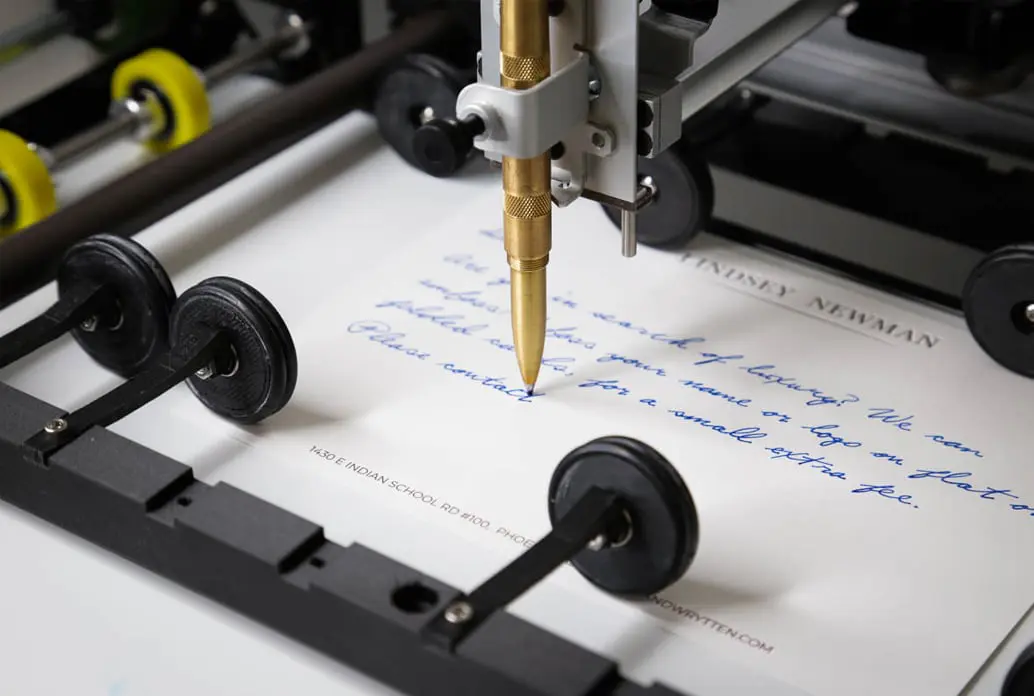 LINDSEY NEWMAN
in search of luxury? We can
your name or logo on flat or
folded for a small extra fee.
Please contact
1430 E INDIAN SCHOOL RD #100, PHOE
NDWRYTTEN.COM